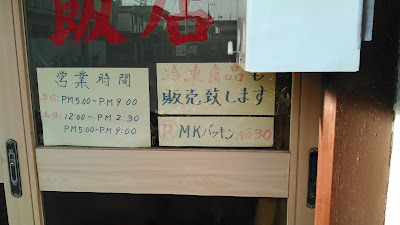 飯店
営業時間
平日:PM5:00~PM9:00
土日:12:00~PM2:30
PM5:00~PM9:00
冷凍食品も
販売致します
Ⓟ MKパッキン No30